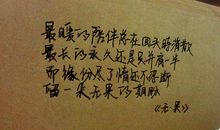 最暖的陪伴总在回头时消散
最长的永久还是只共虚一半
那缘份尽了情还不得断
留一朵无果的期盼
《无果》